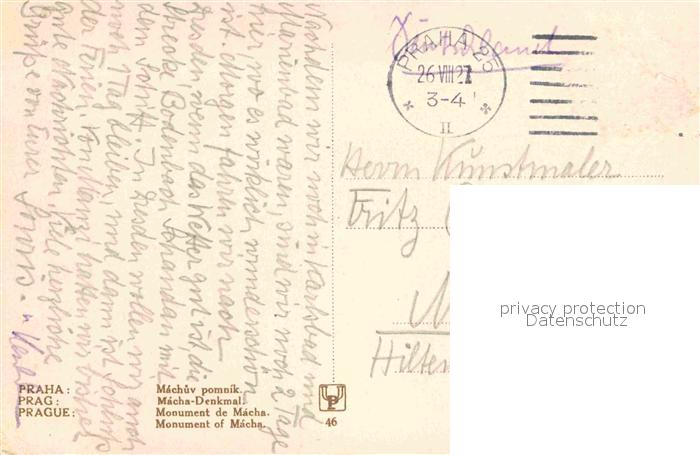 Nachdem wir noch in Karlsbad und
Marienbad waren, sind wir noch 2 Tage
hier wo es wirklich wunderschön
ist. Morgen fahren wir nach
Dresden, wenn das Wetter gut ist die
Strecke Bodenbach Schandau mit
dem Schiff. In Dresden wollen wir auch
noch 1 Tag bleiben, und dann ist Schluß
der Ferien. Von hatten wir bisher
gute Nachrichten. Viele herzliche
Grüße von Eurer
Deutschland
PRAHA 25
26 VIII 27
3-4
II
Herrn Kunstmaler
Fritz
privacy protection
Datenschutz
PRAHA: Máchův pomník.
PRAG: Mácha-Denkmal.
PRAGUE: Monument de Mácha.
Monument of Mácha.
46